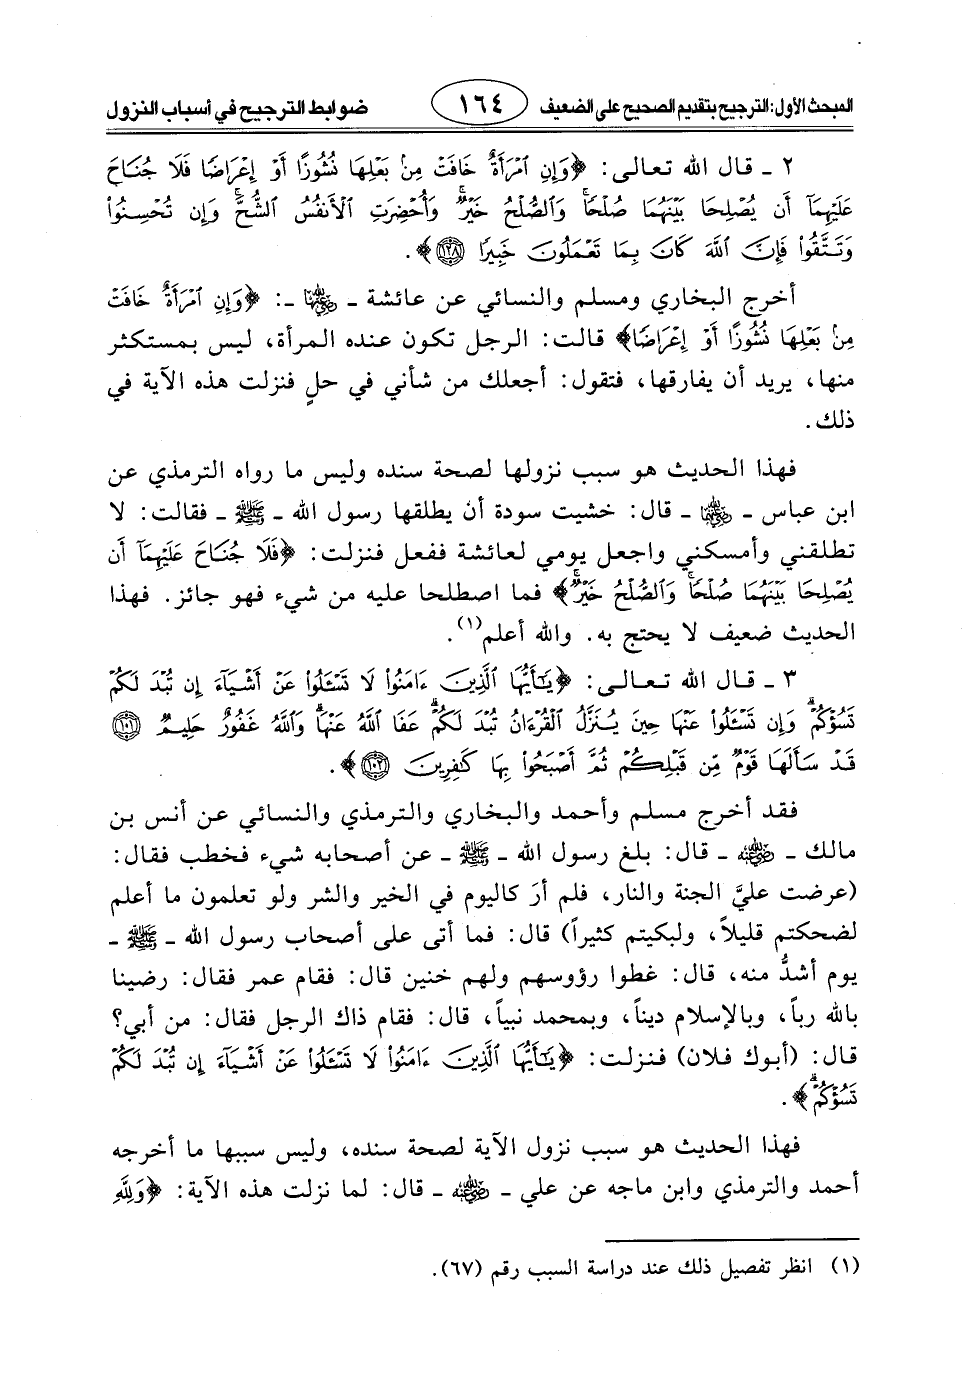 المبحث الأول: الترجيح بتقديم الصحيح على الضعيف ١٦٤ ضوابط الترجيح في أسباب النزول
٢ ـ قال الله تعالى: ﴿وَإِنِ ٱمۡرَأَةٌ خَافَتۡ مِنۢ بَعۡلِهَا نُشُوزًا أَوۡ إِعۡرَاضٗا فَلَا جُنَاحَ
عَلَيۡهِمَآ أَن يُصۡلِحَا بَيۡنَهُمَا صُلۡحٗاۚ وَٱلصُّلۡحُ خَيۡرٞۗ وَأُحۡضِرَتِ ٱلۡأَنفُسُ ٱلشُّحَّۚ وَإِن تُحۡسِنُواْ
وَتَتَّقُواْ فَإِنَّ ٱللَّهَ كَانَ بِمَا تَعۡمَلُونَ خَبِيرٗا ١٢٨﴾.
أخرج البخاري ومسلم والنسائي عن عائشة ـ رضي الله عنها ـ: ﴿وَإِنِ ٱمۡرَأَةٌ خَافَتۡ
مِنۢ بَعۡلِهَا نُشُوزًا أَوۡ إِعۡرَاضٗا﴾ قالت: الرجل تكون عنده المرأة، ليس بمستكثر
منها، يريد أن يفارقها، فتقول: أجعلك من شأني في حلٍ فنزلت هذه الآية في
ذلك.
فهذا الحديث هو سبب نزولها لصحة سنده وليس ما رواه الترمذي عن
ابن عباس ـ رضي الله عنهما ـ قال: خشيت سودة أن يطلقها رسول الله ـ ﷺ ـ فقالت: لا
تطلقني وأمسكني واجعل يومي لعائشة ففعل فنزلت: ﴿فَلَا جُنَاحَ عَلَيۡهِمَآ أَن
يُصۡلِحَا بَيۡنَهُمَا صُلۡحٗاۚ وَٱلصُّلۡحُ خَيۡرٞۗ﴾ فما اصطلحا عليه من شيء فهو جائز. فهذا
الحديث ضعيف لا يحتج به. والله أعلم(١).
٣ ـ قال الله تعالى: ﴿يَٰٓأَيُّهَا ٱلَّذِينَ ءَامَنُواْ لَا تَسۡـَٔلُواْ عَنۡ أَشۡيَآءَ إِن تُبۡدَ لَكُمۡ
تَسُؤۡكُمۡ وَإِن تَسۡـَٔلُواْ عَنۡهَا حِينَ يُنَزَّلُ ٱلۡقُرۡءَانُ تُبۡدَ لَكُمۡ عَفَا ٱللَّهُ عَنۡهَاۗ وَٱللَّهُ غَفُورٌ حَلِيمٞ ١٠١
قَدۡ سَأَلَهَا قَوۡمٞ مِّن قَبۡلِكُمۡ ثُمَّ أَصۡبَحُواْ بِهَا كَٰفِرِينَ ١٠٢﴾.
فقد أخرج مسلم وأحمد والبخاري والترمذي والنسائي عن أنس بن
مالك ـ رضي الله عنه ـ قال: بلغ رسول الله ـ ﷺ ـ عن أصحابه شيء فخطب فقال:
(عرضت عليَّ الجنة والنار، فلم أرَ كاليوم في الخير والشر ولو تعلمون ما أعلم
لضحكتم قليلاً، ولبكيتم كثيراً) قال: فما أتى على أصحاب رسول الله ـ ﷺ ـ
يوم أشدُّ منه، قال: غطوا رؤوسهم ولهم خنين قال: فقام عمر فقال: رضينا
بالله رباً، وبالإسلام ديناً، وبمحمد نبياً، قال: فقام ذاك الرجل فقال: من أبي؟
قال: (أبوك فلان) فنزلت: ﴿يَٰٓأَيُّهَا ٱلَّذِينَ ءَامَنُواْ لَا تَسۡـَٔلُواْ عَنۡ أَشۡيَآءَ إِن تُبۡدَ لَكُمۡ
تَسُؤۡكُمۡ﴾.
فهذا الحديث هو سبب نزول الآية لصحة سنده، وليس سببها ما أخرجه
أحمد والترمذي وابن ماجه عن علي ـ رضي الله عنه ـ قال: لما نزلت هذه الآية: ﴿وَلِلَّهِ
(١) انظر تفصيل ذلك عند دراسة السبب رقم (٦٧).